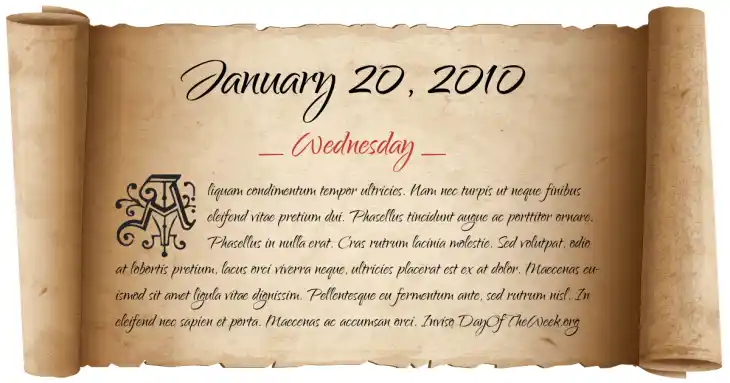 January 20, 2010
_ Wednesday _
Aliquam condimentum tempor ultricies. Nam nec turpis ut neque finibus
eleifend vitae pretium dui. Phasellus tincidunt augue ac porttitor ornare.
Phasellus in nulla erat. Cras rutrum lacinia molestie. Sed volutpat, odio
at lobortis pretium, lacus orci viverra neque, ultricies placerat est ex at dolor. Maecenas eu-
ismod sit amet ligula vitae dignissim. Pellentesque eu fermentum ante, sed rutrum nisl. In
eleifend nec sapien et porta. Maecenas ac accumsan orci. Inviso DayOfTheWeek.org